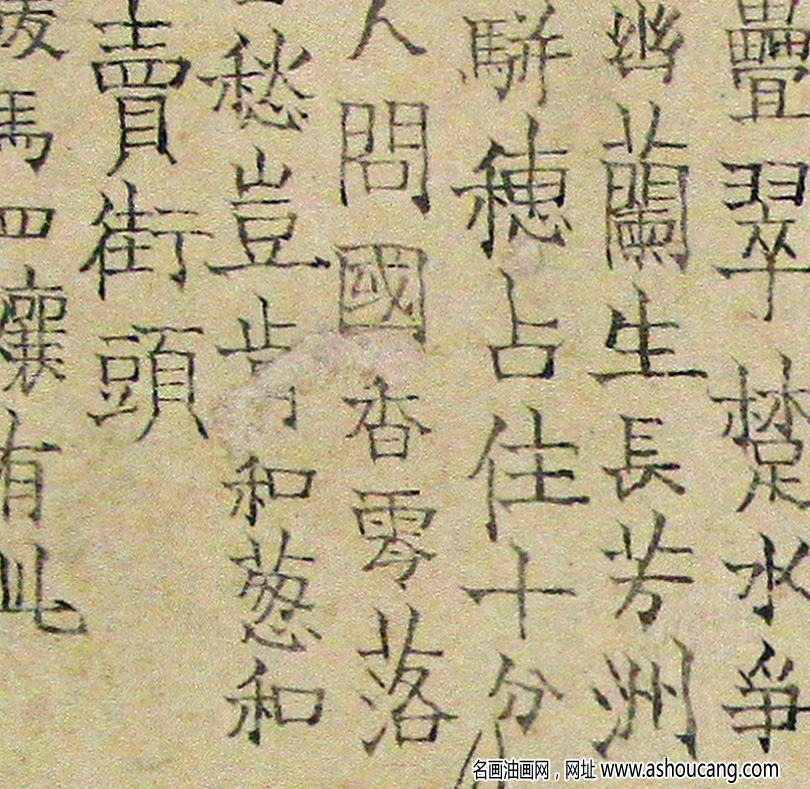 疊翠楚水爭
幽蘭生長芳洲
駢穗占住十分
人問國香零落
愁豈肯和葱和
賣街頭
馬四壤有此
名画油画网，网址 www.ashoucang.com